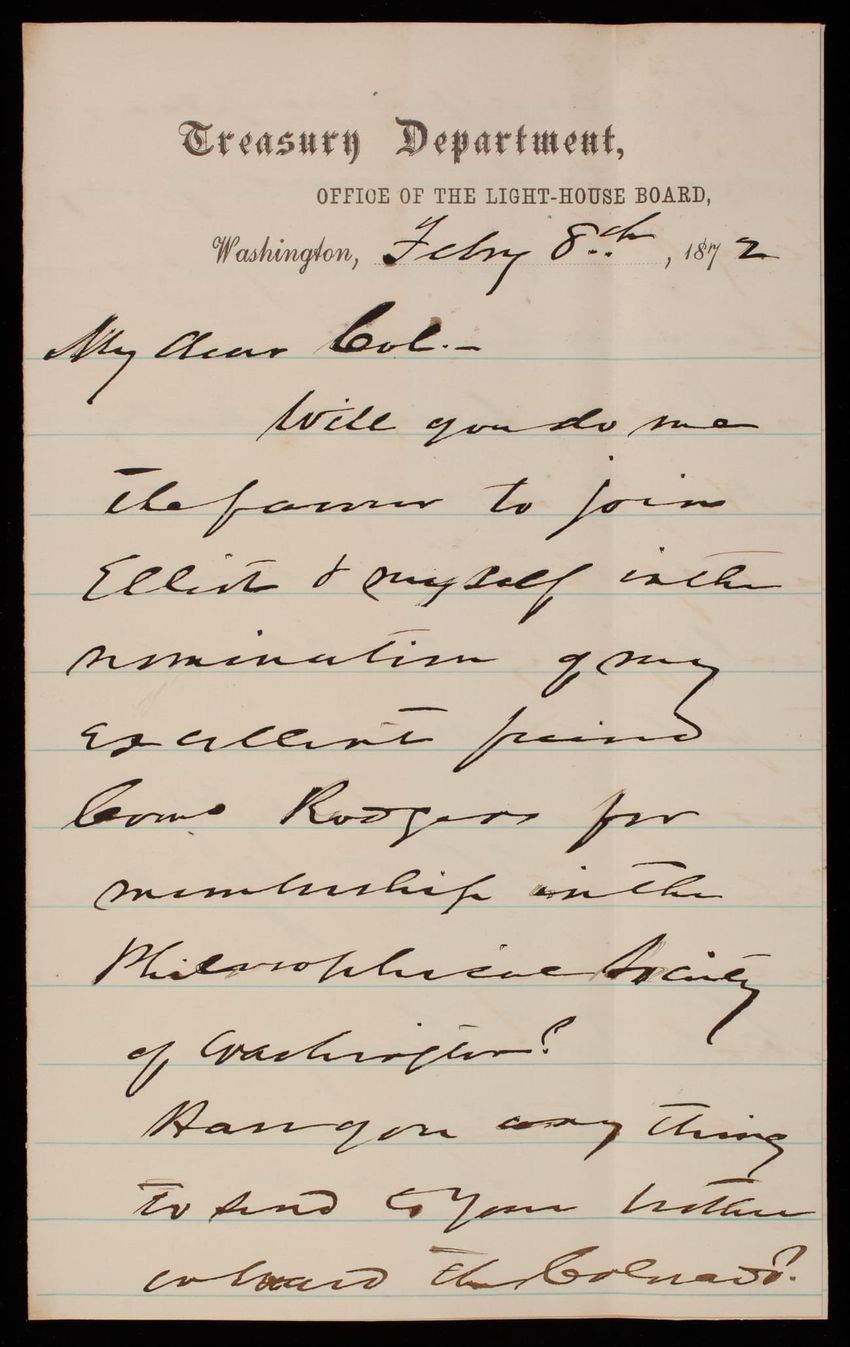 Treasury Department,
OFFICE OF THE LIGHT-HOUSE BOARD,
Washington, Feby 8th, 1872
My dear Col.-
Will you do me
the favour to join
Elliot & myself in the
nomination of my
excellent friend
Com Rodgers for
membership in the
Philosophical Society
of Washington?
Have you any thing
to send to your brother
on board the Colorado?